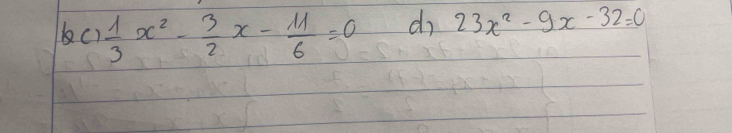 c) 1/3 x² - 3/2 x - 11/6 = 0 d) 23x² - 9x - 32 = 0